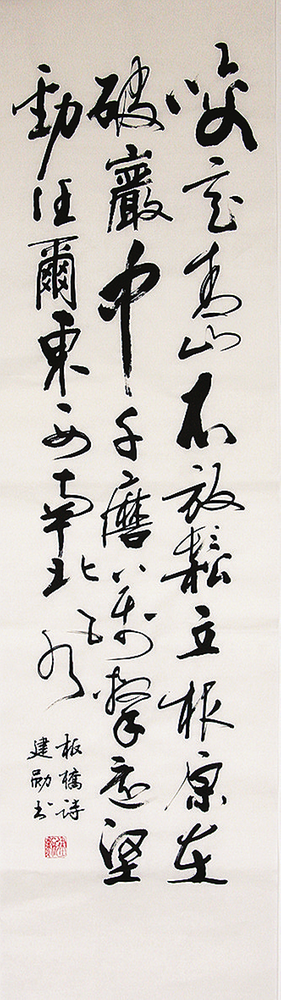 咬定青山不放鬆立根原在
破巖中千磨萬擊還堅
勁任爾東西南北風
板橋詩
建勋书